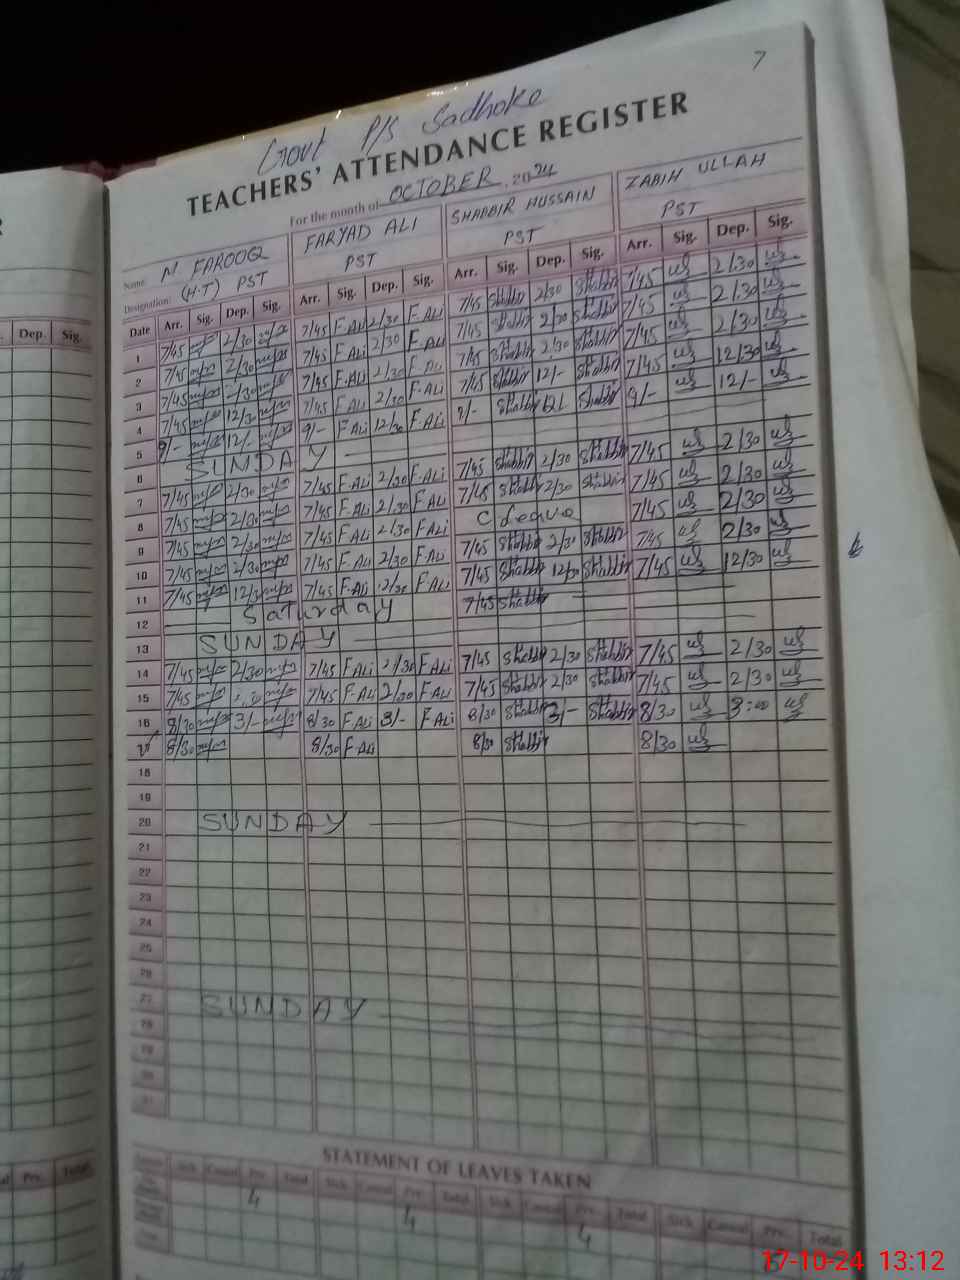 7
Govt P/S Sadhoke
TEACHERS' ATTENDANCE REGISTER
For the month of OCTOBER, 2024
Name: M. FAROOQ FARYAD ALI SHABBIR HUSSAIN ZABIH ULLAH
Designation: (H.T) PST PST PST PST
Date Arr. Sig. Dep. Sig. Arr. Sig. Dep. Sig. Arr. Sig. Dep. Sig. Arr. Sig. Dep. Sig.
1 7/45 2/30 7/45 F.ALi 2/30 F.ALi 7/45 Shabbir 2/30 Shabbir 7/45 2/30
2 7/45 2/30 7/45 F.ALi 2/30 F.ALi 7/45 Shabbir 2/30 Shabbir 7/45 2/30
3 7/45 2/30 7/45 F.ALi 2/30 F.ALi 7/45 Shabbir 2/30 Shabbir 7/45 2/30
4 7/45 12/30 7/45 F.ALi 2/30 F.ALi 7/45 Shabbir 12/- Shabbir 7/45 12/30
5 9/- 12/- 9/- F.ALi 12/30 F.ALi 9/- Shabbir Shabbir 9/- 12/-
6 SUNDAY
7 7/45 2/30 7/45 F.ALi 2/30 F.ALi 7/45 Shabbir 2/30 Shabbir 7/45 2/30
8 7/45 2/30 7/45 F.ALi 2/30 F.ALi 7/45 Shabbir 2/30 Shabbir 7/45 2/30
9 7/45 2/30 7/45 F.ALi 2/30 F.ALi C Leave 7/45 2/30
10 7/45 2/30 7/45 F.ALi 2/30 F.ALi 7/45 Shabbir 2/30 Shabbir 7/45 2/30
11 7/45 12/30 7/45 F.ALi 12/30 F.ALi 7/45 Shabbir 12/30 Shabbir 7/45 12/30
12 Saturday 7/45 Shabbir
13 SUNDAY
14 7/45 2/30 7/45 F.ALi 2/30 F.ALi 7/45 Shabbir 2/30 Shabbir 7/45 2/30
15 7/45 7/45 F.ALi 2/30 F.ALi 7/45 Shabbir 2/30 Shabbir 7/45 2/30
16 8/30 3/- 8/30 F.ALi 3/- F.ALi 8/30 Shabbir 3/- Shabbir 8/30 3:00
8/30 8/30 F.ALi 8/30 Shabbir 8/30
18
19
20 SUNDAY
21
22
23
24
25
26
27 SUNDAY
28
29
30
31
STATEMENT OF LEAVES TAKEN
Sick Casual Pre. Total Sick Casual Pre. Total Sick Casual Pre. Total Sick Casual Pre. Total
4 4 4
Dep. Sig.
Pre. Total
17-10-24 13:12